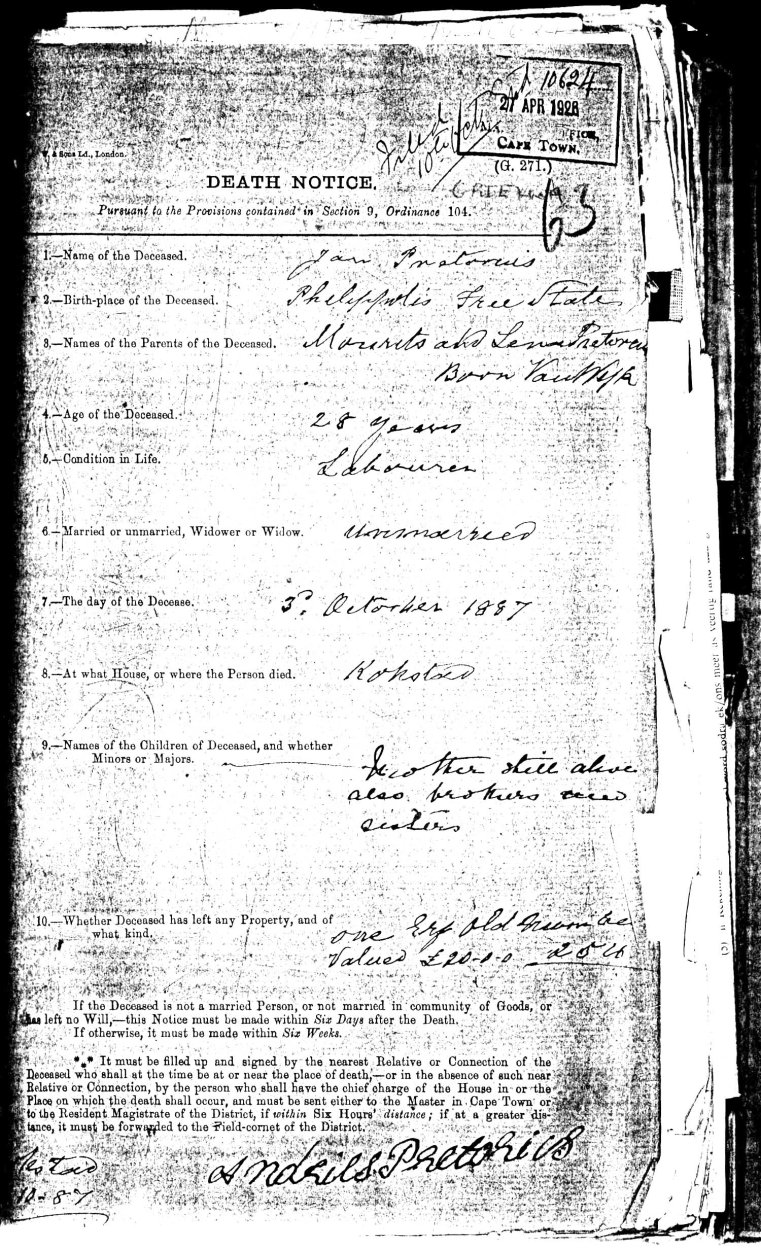 10624
27 APR 1926
CAPE TOWN.
Filed
& Sons Ld., London.
(G. 271.)
DEATH NOTICE.
63
Pursuant to the Provisions contained in Section 9, Ordinance 104.
1.—Name of the Deceased. Jan Pretorius
2.—Birth-place of the Deceased. Philippolis Free State
3.—Names of the Parents of the Deceased. Mourits and Lena Pretorius
Born Van Wyk
4.—Age of the Deceased. 28 years
5.—Condition in Life. Labourer
6.—Married or unmarried, Widower or Widow. Unmarried
7.—The day of the Decease. 3d. October 1887
8.—At what House, or where the Person died. Kokstad
9.—Names of the Children of Deceased, and whether
Minors or Majors. Mother still alive
also brothers and
sisters
10.—Whether Deceased has left any Property, and of
what kind. one Erf Old Number
Valued £20-0-0
If the Deceased is not a married Person, or not married in community of Goods, or
has left no Will,—this Notice must be made within Six Days after the Death.
If otherwise, it must be made within Six Weeks.
*⁎* It must be filled up and signed by the nearest Relative or Connection of the
Deceased who shall at the time be at or near the place of death,—or in the absence of such near
Relative or Connection, by the person who shall have the chief charge of the House in or the
Place on which the death shall occur, and must be sent either to the Master in Cape Town or
to the Resident Magistrate of the District, if within Six Hours' distance; if at a greater dis-
tance, it must be forwarded to the Field-cornet of the District.
Andries Pretorius